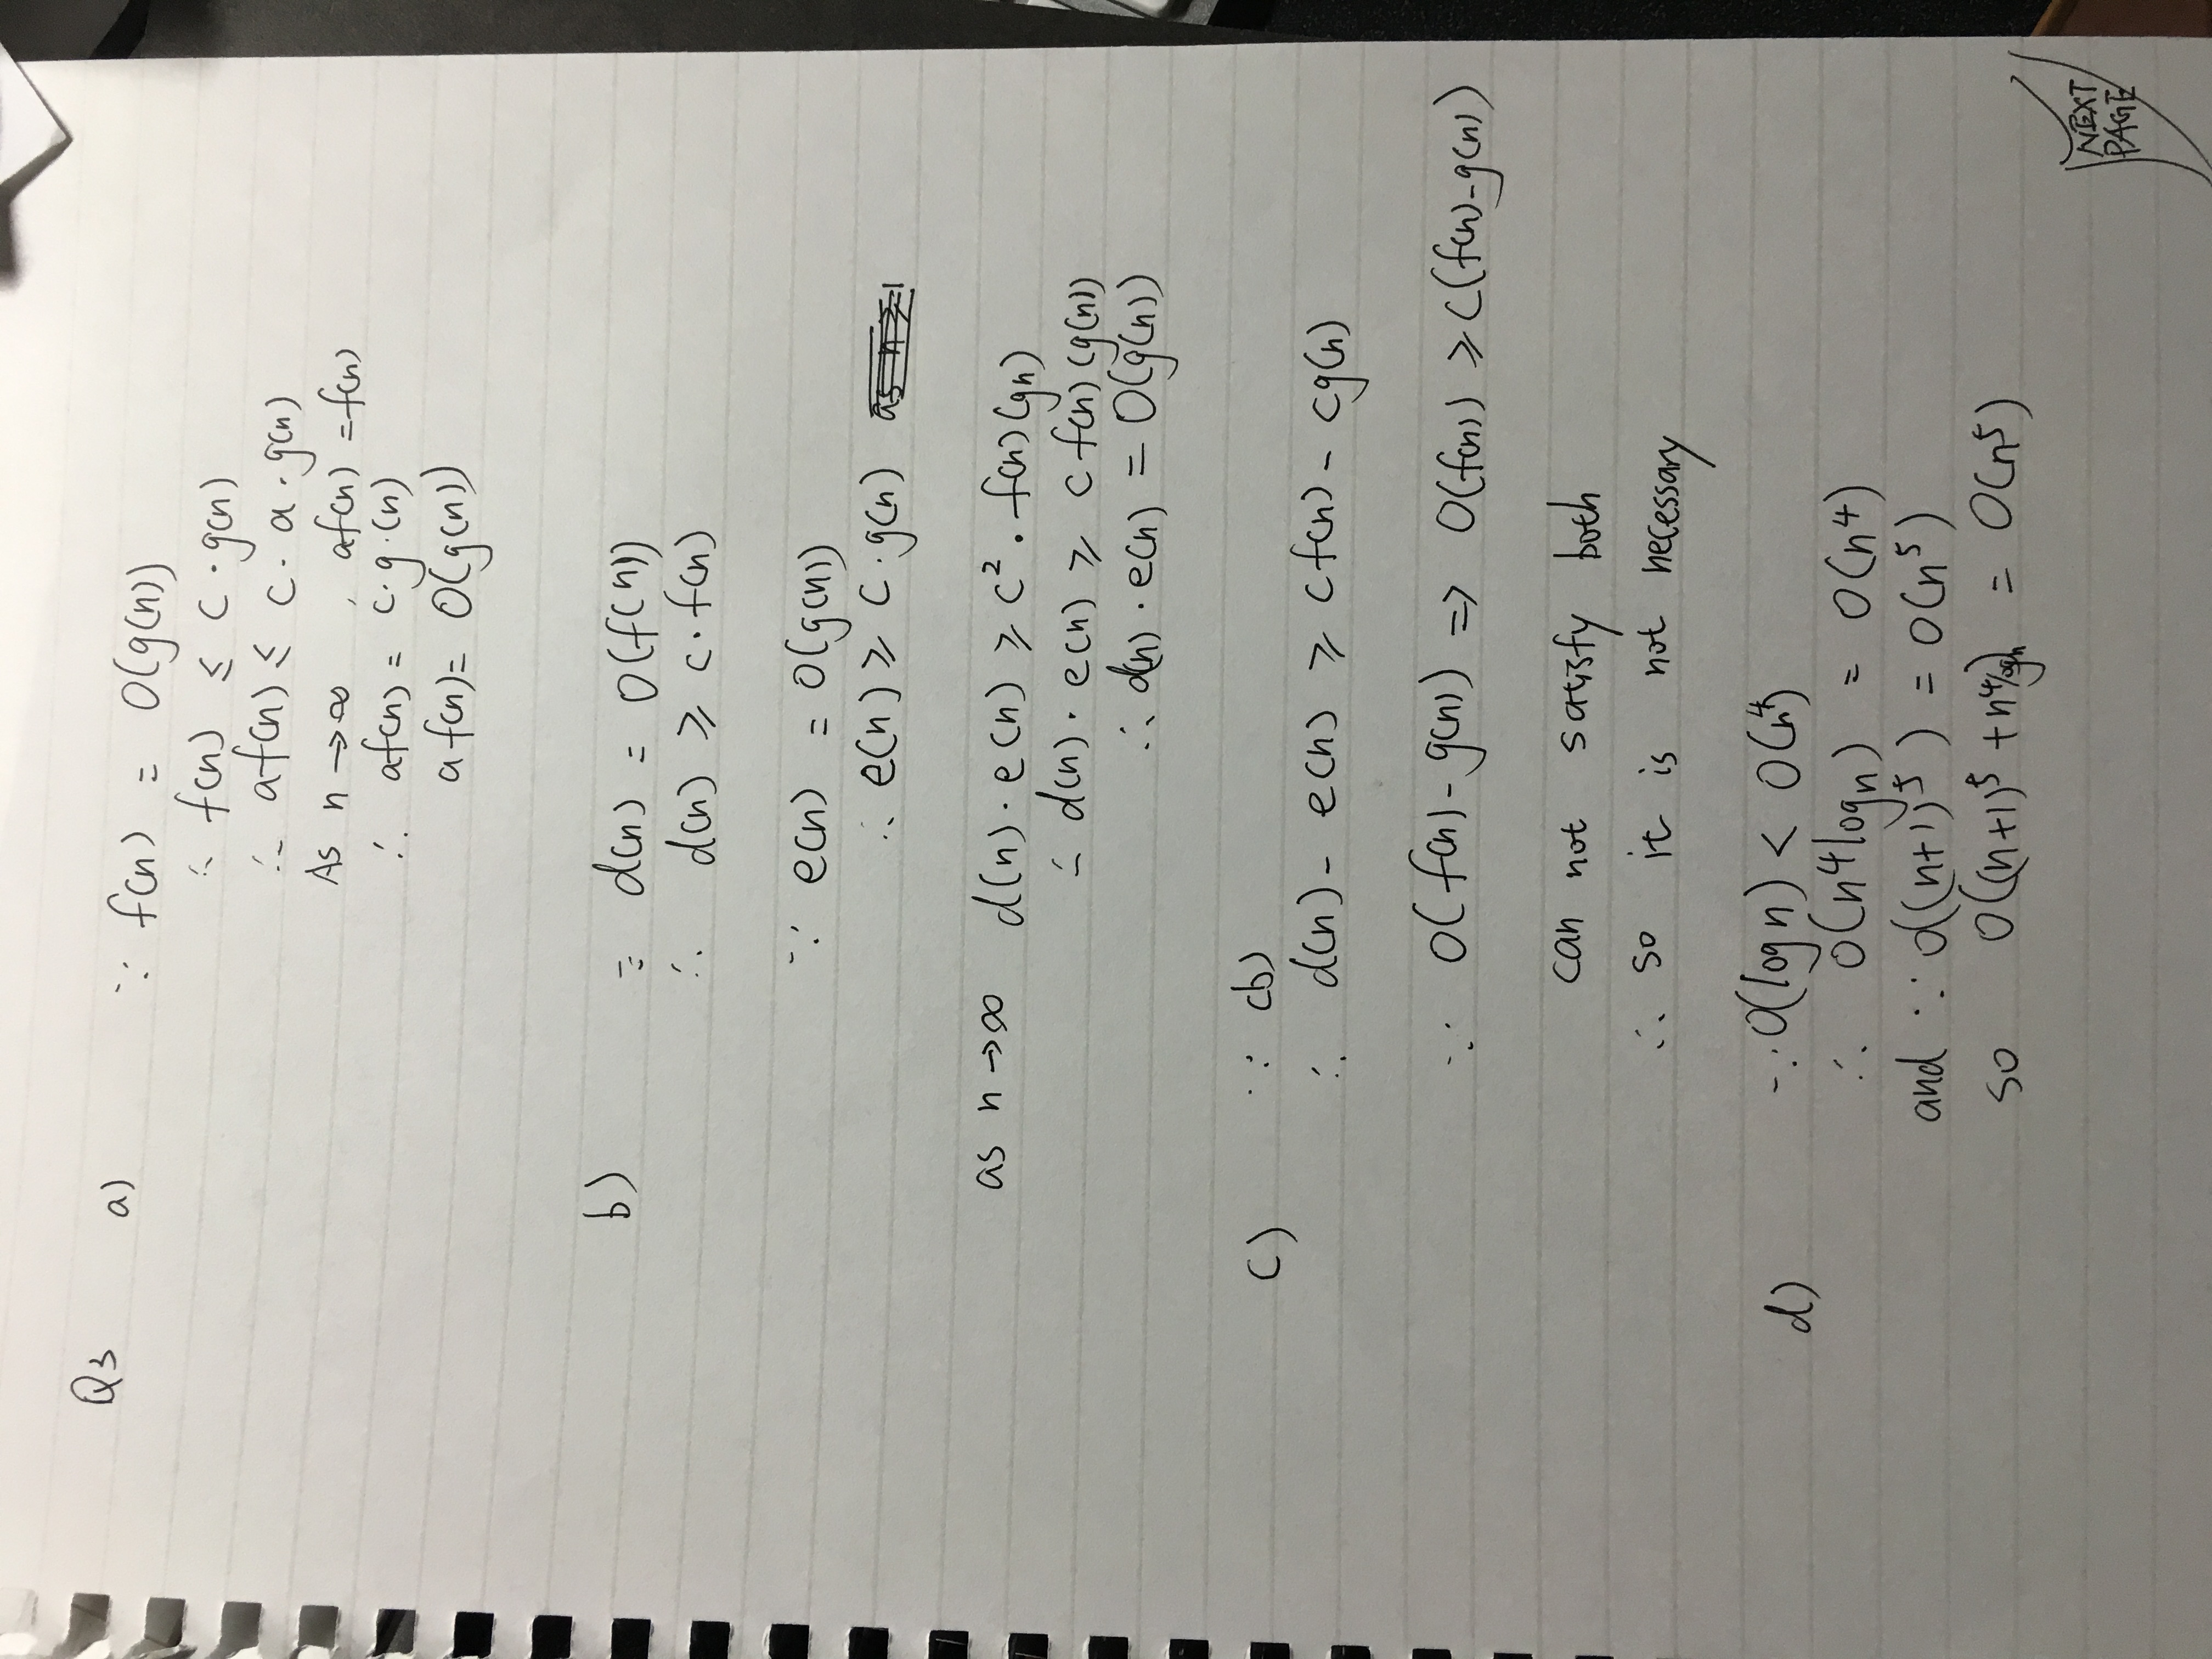 Q3 a) ∵ f(n) = O(g(n))
∴ f(n) ≤ c · g(n)
∴ af(n) ≤ c · a · g(n)
As n → ∞ , af(n) = f(n)
∴ af(n) = c · g · (n)
af(n) = O(g(n))
b) ∵ d(n) = O(f(n))
∴ d(n) ≥ c · f(n)
∵ e(n) = O(g(n))
∴ e(n) ≥ c · g(n) as n ≥ 1
as n → ∞ d(n) · e(n) ≥ c² · f(n)(gn)
∴ d(n) · e(n) ≥ c f(n)(g(n))
∴ d(n) · e(n) = O(g(n))
c) ∵ (b)
∴ d(n) - e(n) ≥ cf(n) - cg(n)
∵ O(f(n) - g(n)) ⇒ O(f(n)) ≥ c(f(n) - g(n))
can not satisfy both
∴ so it is not necessary
d) ∵ O(log n) < O(n⁴)
∴ O(n⁴logn) = O(n⁴)
and ∵ O((n+1)⁵) = O(n⁵)
so O((n+1)⁵ + n⁴logn) = O(n⁵)
NEXT
PAGE